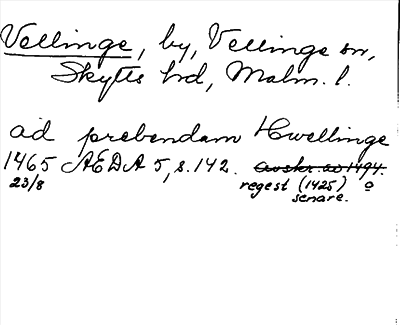 Vellinge, by, Vellinge sn,
Skytts hd, Malm. l.
ad prebendam Hwellinge
1465 AEDA 5, s. 142. avskr. av 1494.
23/8 regest (1425) o
senare.